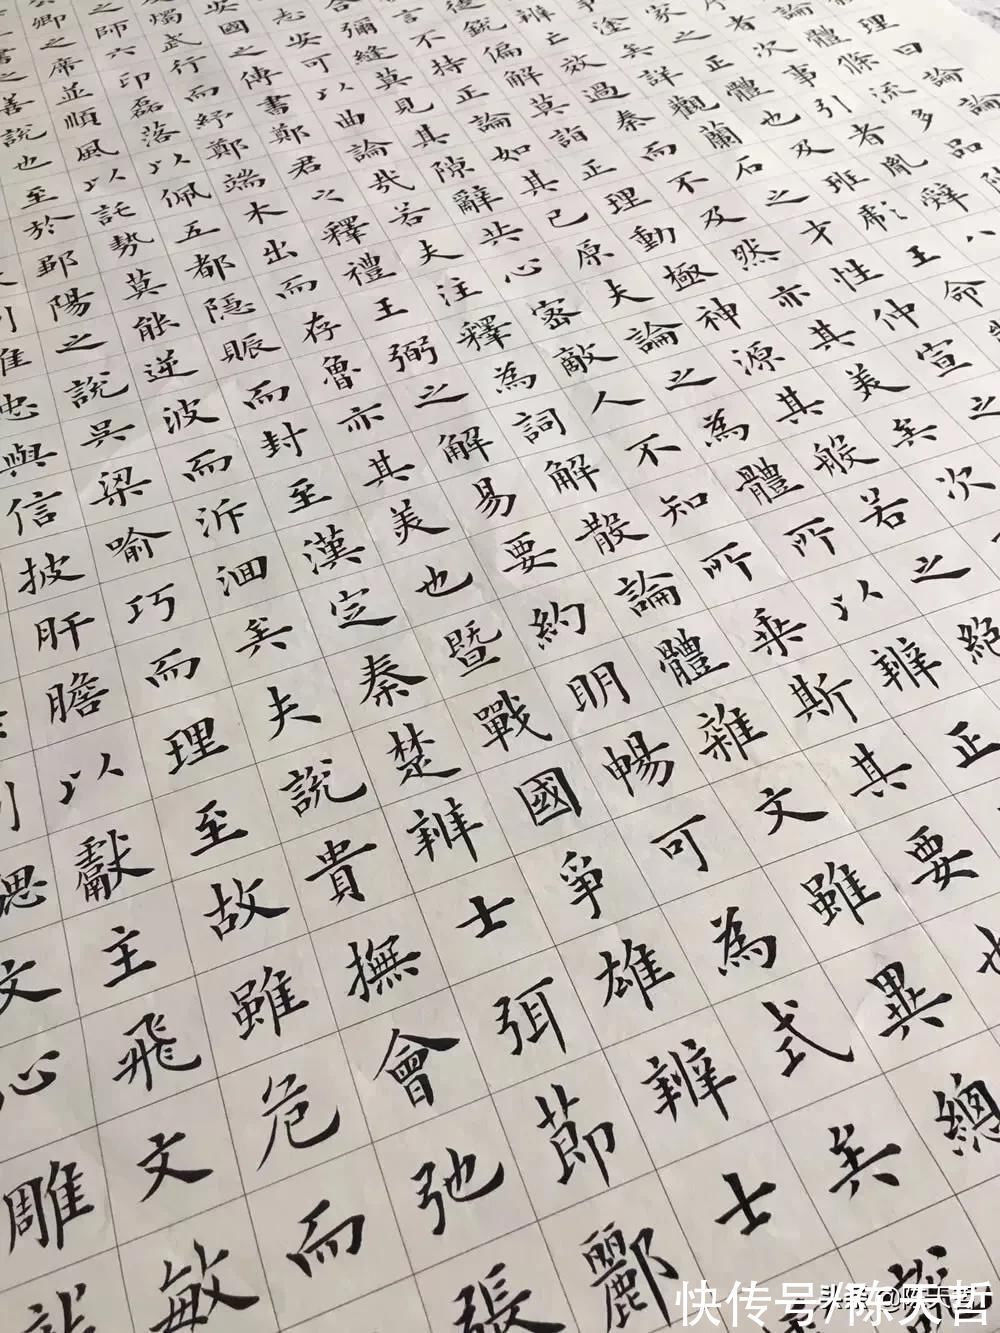 理曰論論
論體條流多品陳
序者次事引者胤辭八
家之正體也及班彪王命
爭塗矣詳觀蘭石之才性仲宣之
辨亡效過秦而不及然亦其美矣次
後銳偏解莫詣正理動極神源其般若之絕
言不持正論如其已原夫論之為體所以辨正
合彌縫莫見其隙辭共心密敵人不知所乘斯其要也
志安可以曲論哉若夫注釋為詞解散論體雜文雖異總
安國之傳書鄭君之釋禮王弼之解易要約明暢可為式矣
燭武行而紓鄭端木出而存魯亦其美也暨戰國爭雄辨士
之師六印磊落以佩五都隱賑而封至漢定秦楚辨士弭節酈
卿之席並順風以託勢莫能逆波而泝洄矣夫說貴撫會弛張
書之善說也至於鄒陽之說吳梁喻巧而理至故雖危而
唯忠與信披肝膽以獻主飛文敏
文心雕龍
快传号/陈天哲